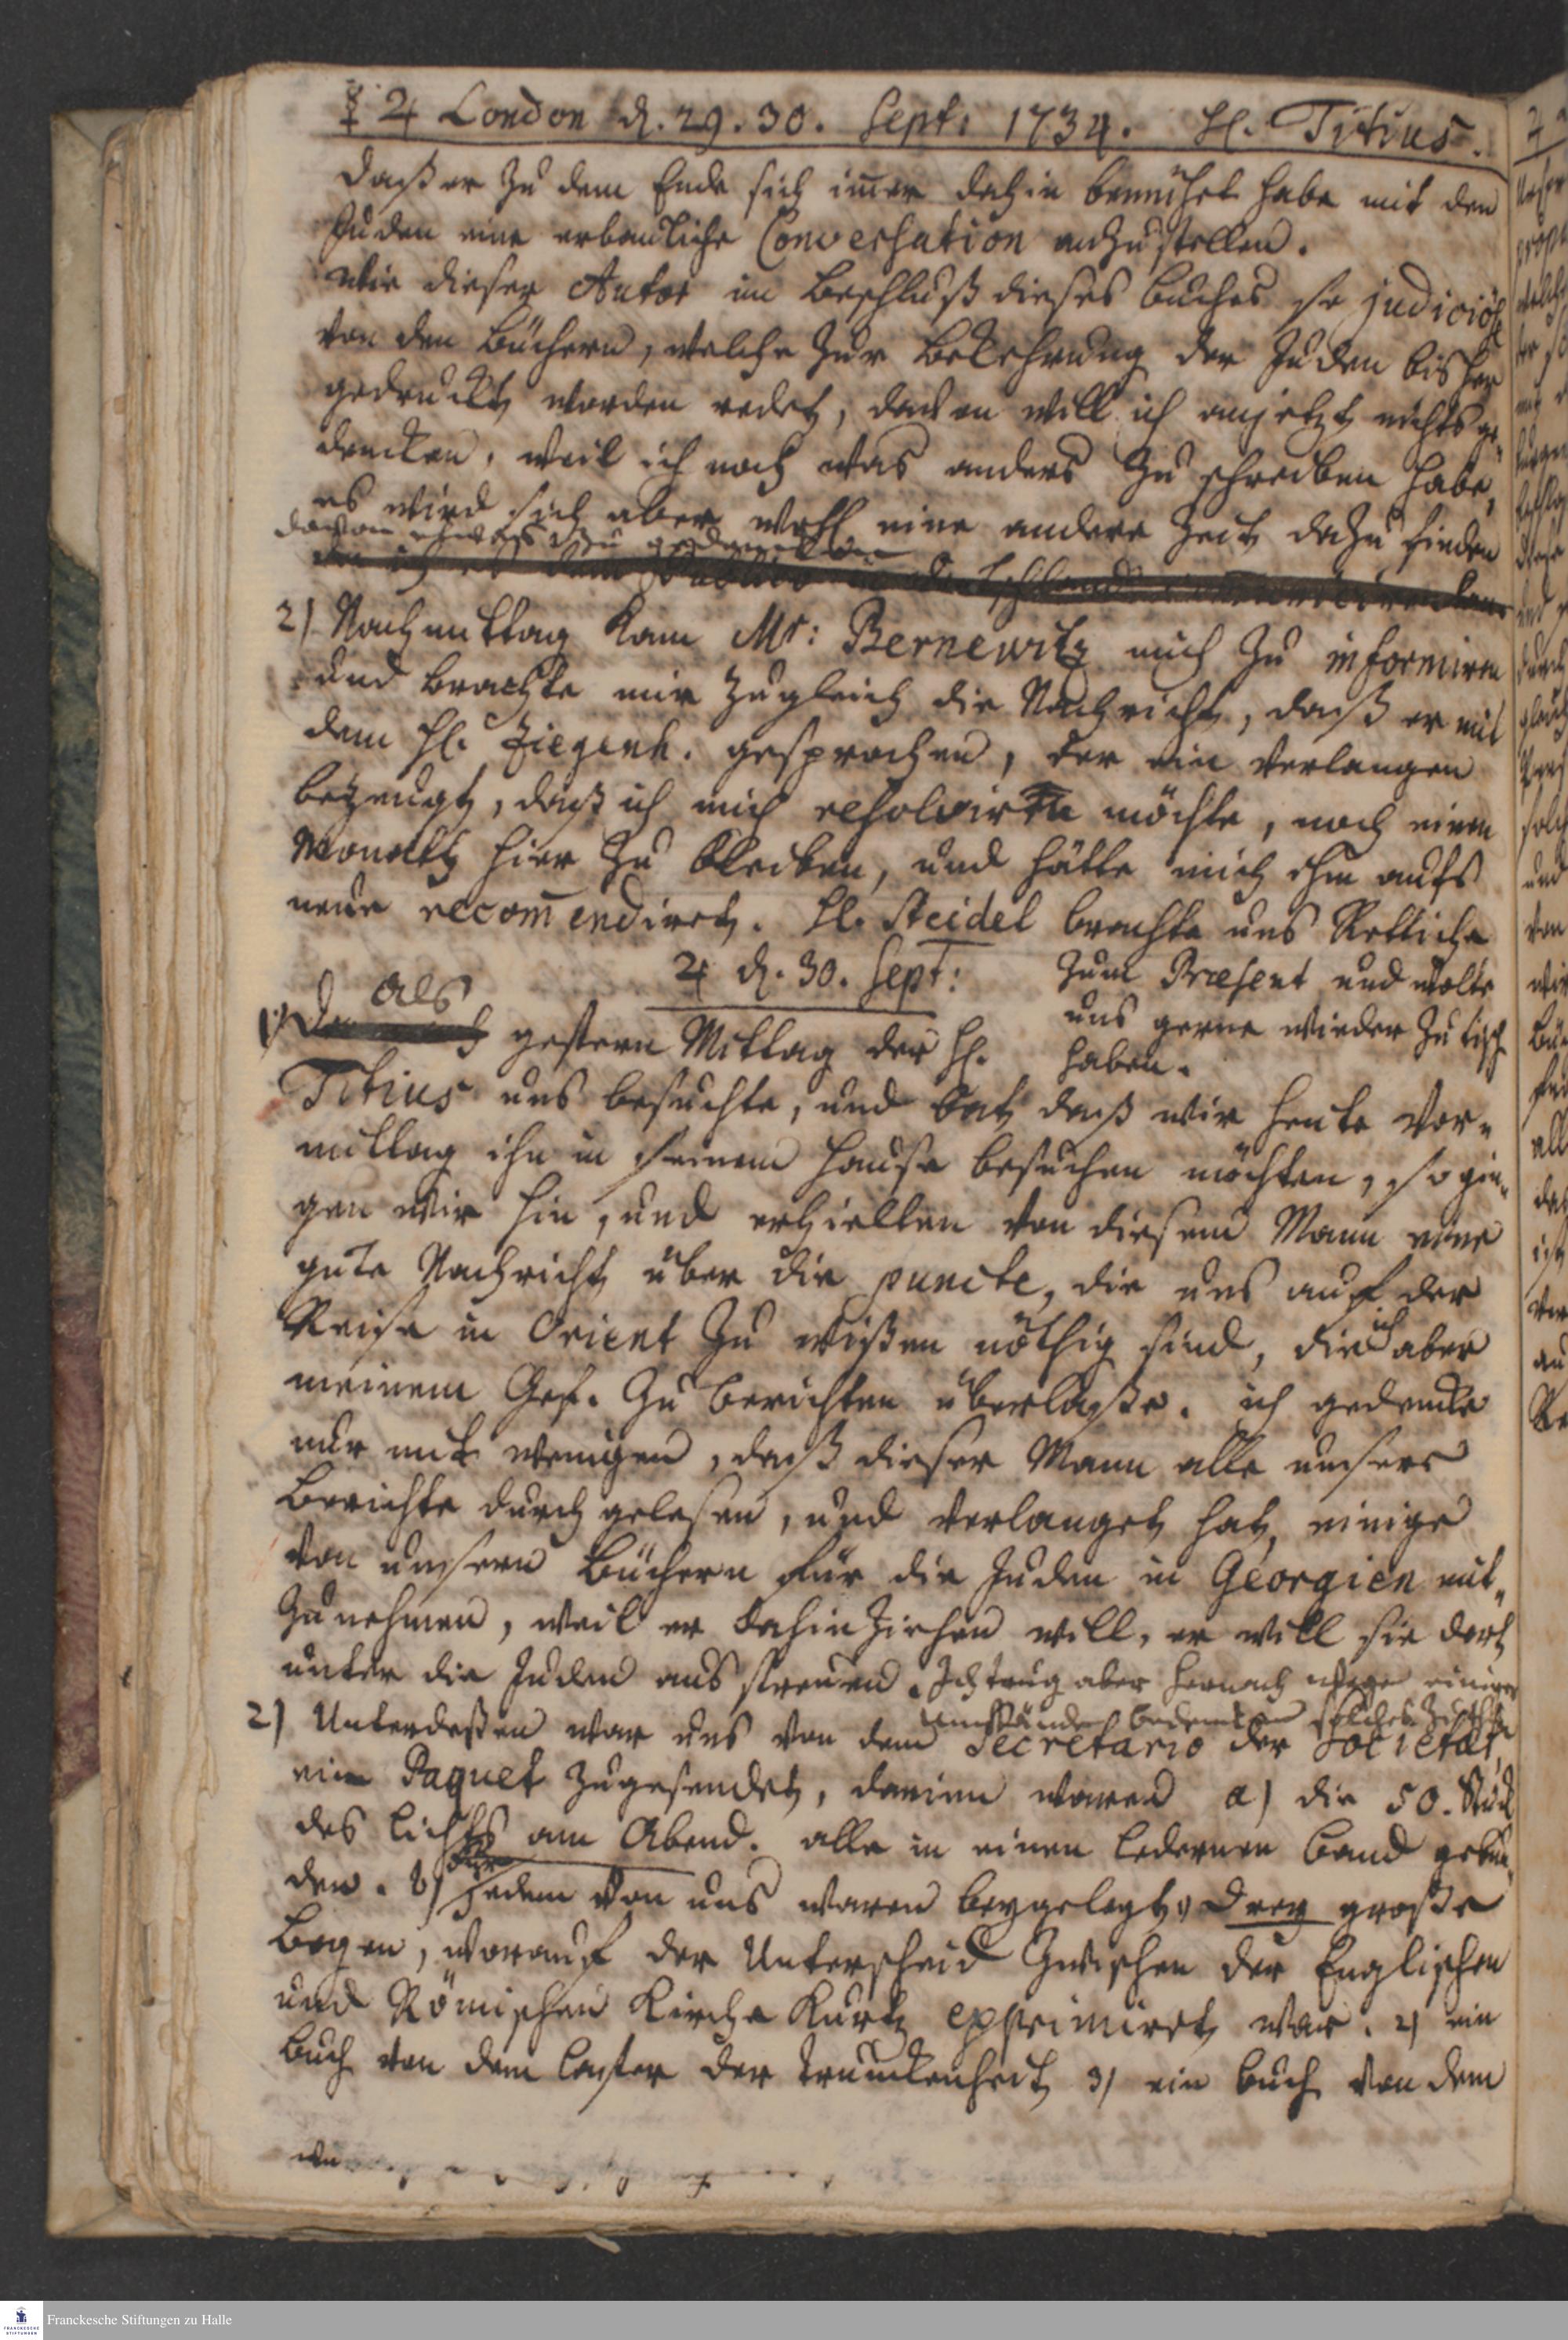 ☿ ♃ London d. 29. 30. Sept. 1734. H. Titius.
daß er zu dem Ende sich im̄er dahin bemühet habe mit den
Juden eine erbauliche Conversation anzustellen.
Wie dieser Autor im Beschluß dieses Buches so judiciös
von den Büchern, welche zur Bekehrung der Juden bisher
gedruckt worden redet, davon will ich anjetzt nichts ge-
dencken, weil ich noch was anders zu schreiben habe,
es wird sich aber wohl eine andere Zeit dazu finden
davon etwas zu gedencken
2) Nachmittag kam Mr: Bernewitz mich zu informiren
und brachte mir zugleich die Nachricht, daß er mit
dem H. Ziegenh. gesprochen, der ein Verlangen
bezeugt, daß ich mich resolviren möchte, noch einen
Monath hier zu bleiben, und hätte mich ihm aufs
neue recom̄endiret. H. Steidel brachte uns Rettiche
zum Præsent und wolte
uns gerne wieder zu tisch
haben.
♃ d. 30. Sept:
1) Als gestern Mittag der H.
Titius uns besuchte, und bat daß wir heute Vor-
mittag ihn in seinem Hause besuchen möchten, so gin-
gen wir hin, und erhielten von diesem Mann eine
gute Nachricht über die puncte, die uns auf der
Reise in Orient zu wißen nöthig sind, die ich aber
meinem Gef. zu berichten überlaße. ich gedencke
nur mit wenigen, daß dieser Mann alle unsere
Berichte durch gelesen, und verlanget hat, einige
von unsern Büchern für die Juden in Georgien mit-
zunehmen, weil er dahin ziehen will, er will sie dort
unter die Juden aus streuen. Ich trug aber hernach wegen einiger
Umstände bedencken solches zu thun
2) Unterdeßen war uns von dem Secretario der Societät,
ein Paquet zugesendet, darinn waren a) die 50. Stück
des Lichts am Abend. alle in einen ledernen Band gebun-
den. b) Für jedem von uns waren beygelegt 1) Drey große
Bogen, worauf der Unterscheid zwischen der Englischen
und Römischen Kirche kurtz exprimiret war. 2) ein
Buch von dem Laster der Trunckenheit 3) ein Buch von dem